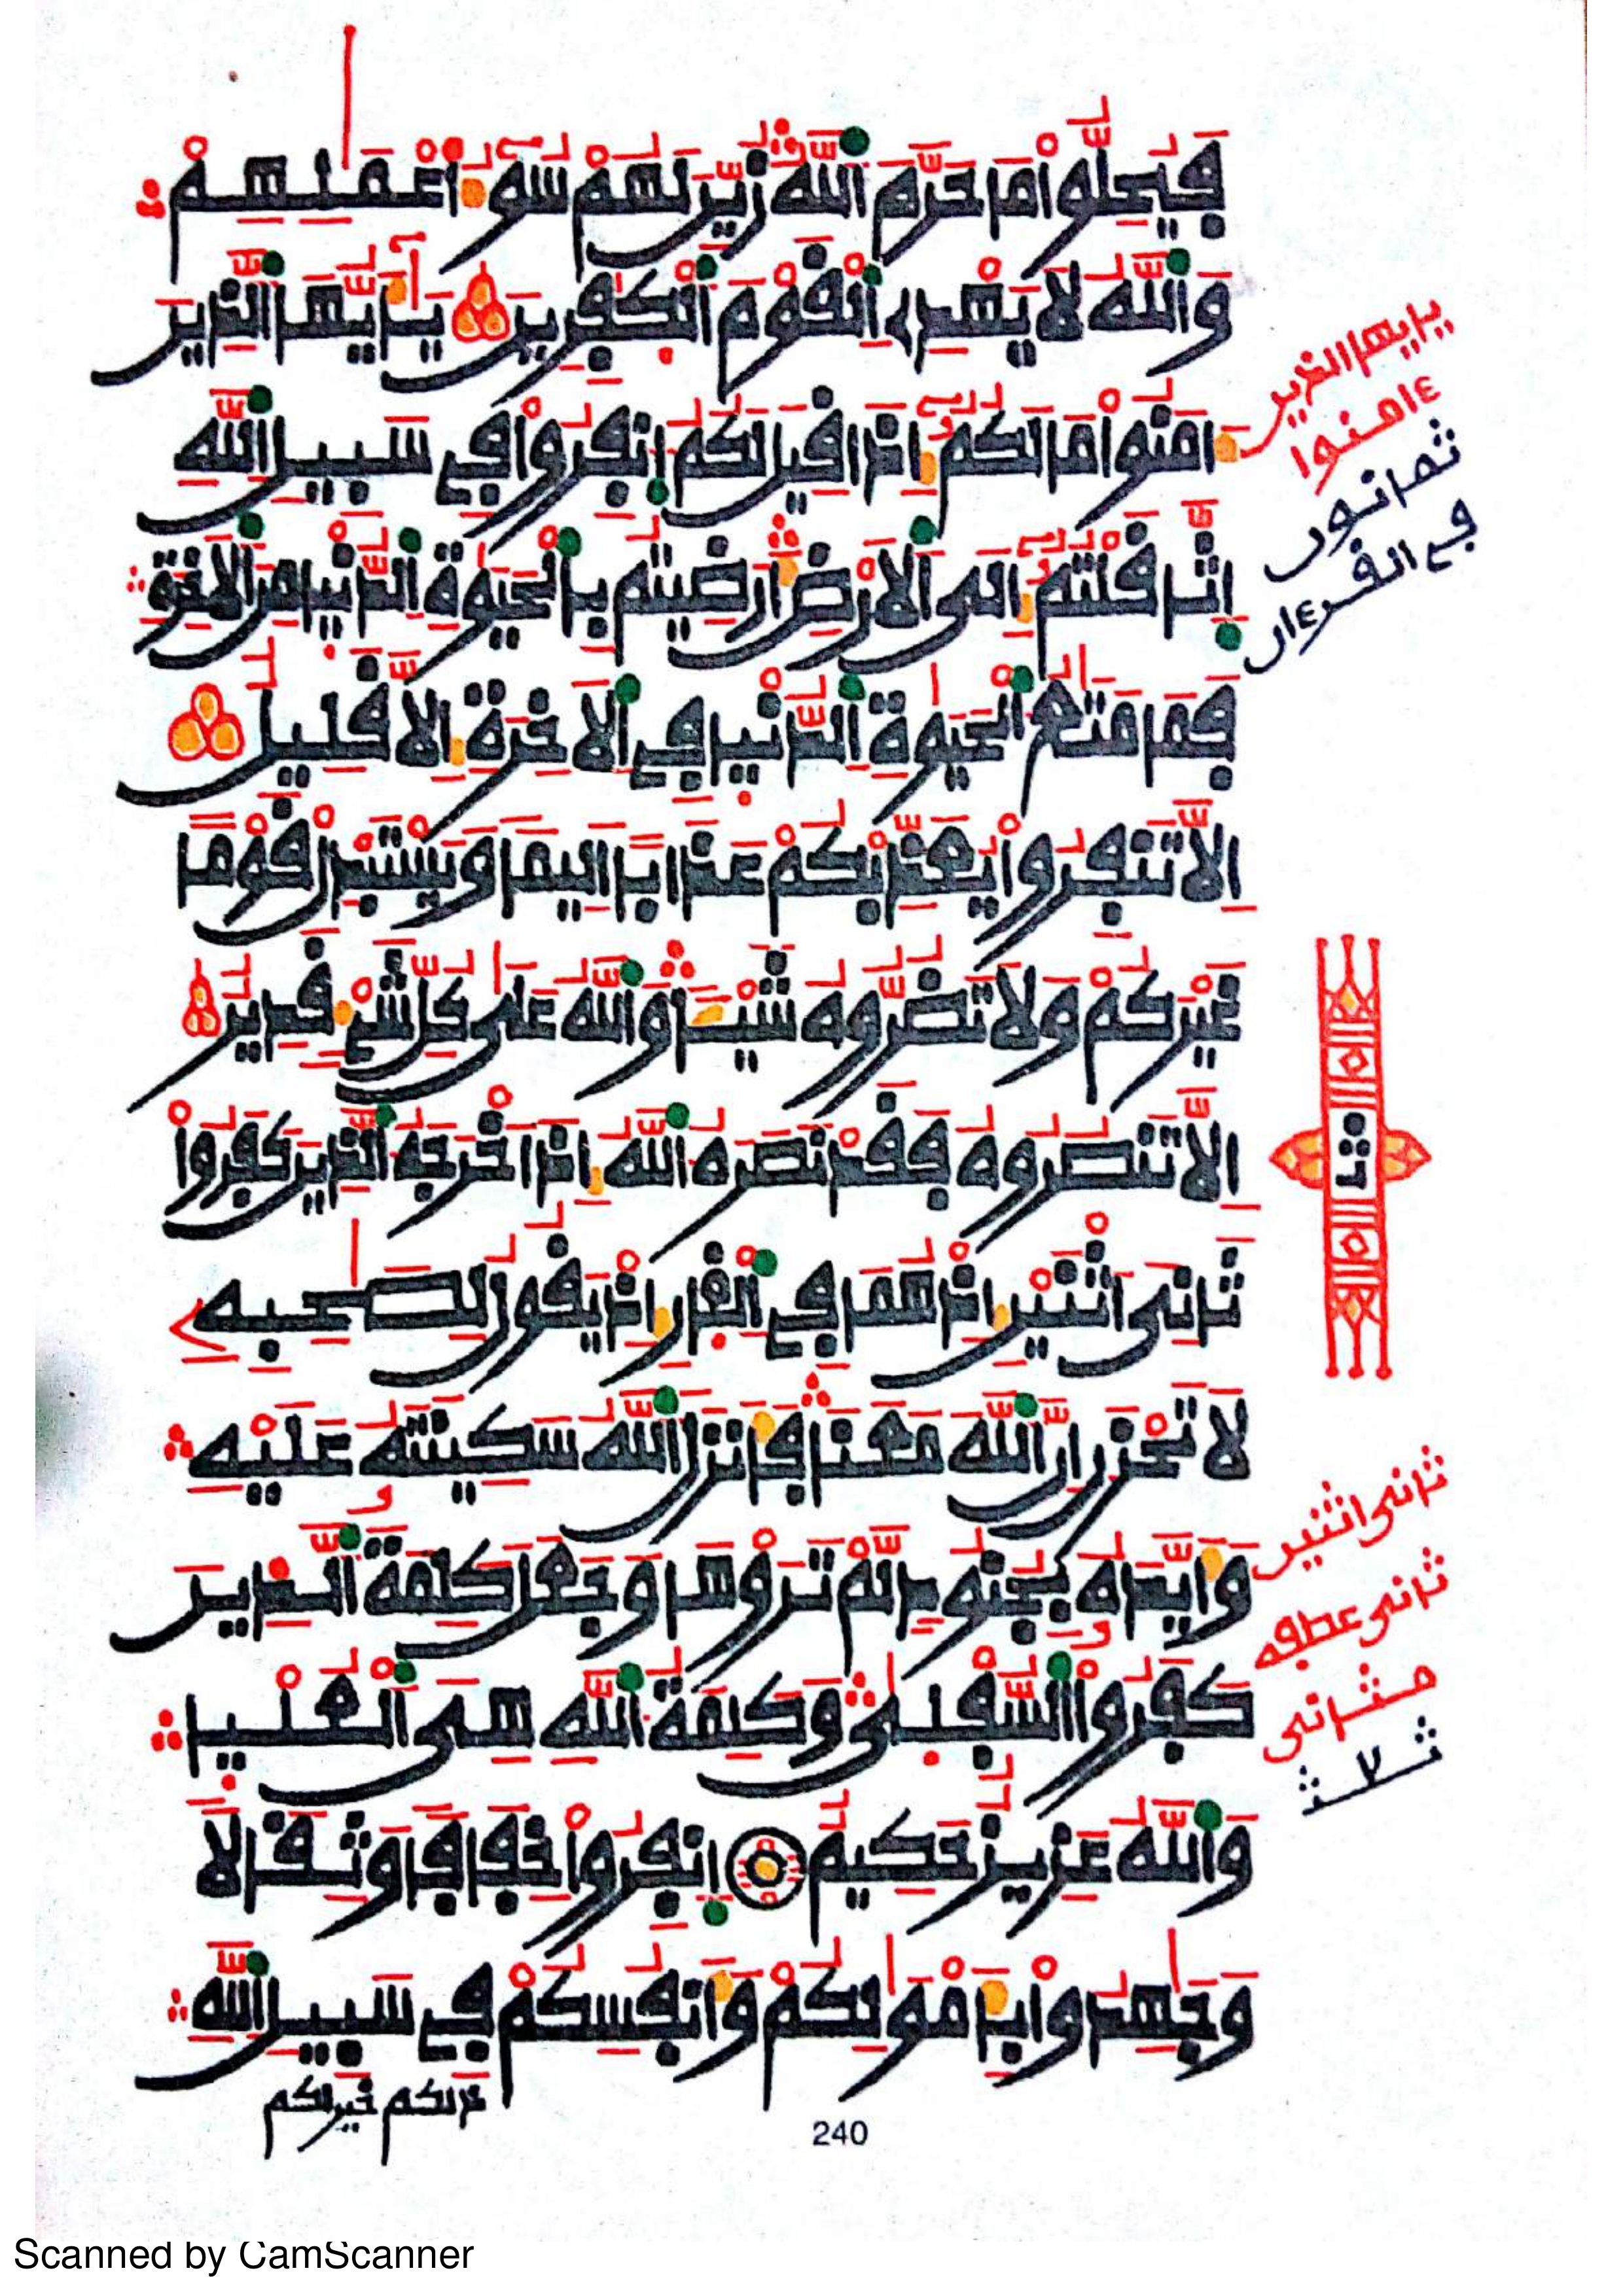 فَيُحِلُّواْ مَا حَرَّمَ اَللَّهُ زُيِّنَ لَهُمْ سُوٓءُ اَعْمَٰلِهِمْ
وَاللَّهُ لَا يَهْدِے اِلْقَوْمَ اَلْكٰفِرِينَ يَٰٓأَيُّهَا اَلذِينَ
ءَامَنُواْ مَا لَكُمُۥٓ إِذَا قِيلَ لَكُمُ اُنفِرُواْ فِے سَبِيلِ اِللَّهِ
اِثَّاقَلْتُمُۥٓ إِلَى اَلَارْضِ أَرَضِيتُم بِالْحَيَوٰةِ اِلدُّنْيَا مِنَ اَلَاخِرَةِ
فَمَا مَتَٰعُ اُلْحَيَوٰةِ اِلدُّنْيَا فِے اِلَاخِرَةِ إِلَّا قَلِيلٌ
اِلَّا تَنفِرُواْ يُعَذِّبْكُمْ عَذَاباً اَلِيماً وَيَسْتَبْدِلْ قَوْماً
غَيْرَكُمْ وَلَا تَضُرُّوهُ شَيْـٔاً وَاللَّهُ عَلَىٰ كُلِّ شَےْءٍ قَدِيرٌ
اِلَّا تَنصُرُوهُ فَقَدْ نَصَرَهُ اُللَّهُ إِذَ اَخْرَجَهُ اُلذِينَ كَفَرُواْ
ثَانِىَ اَثْنَيْنِ إِذْ هُمَا فِے اِلْغَارِ إِذْ يَقُولُ لِصَٰحِبِهِۦ
لَا تَحْزَنِ اِنَّ اَللَّهَ مَعَنَا فَأَنزَلَ اَللَّهُ سَكِينَتَهُۥ عَلَيْهِ
وَأَيَّدَهُۥ بِجُنُودٍ لَّمْ تَرَوْهَا وَجَعَلَ كَلِمَةَ اَلذِينَ
كَفَرُواْ السُّفْلَىٰ وَكَلِمَةُ اُللَّهِ هِىَ اَلْعُلْيَا
وَاللَّهُ عَزِيزٌ حَكِيمٌ اِنفِرُواْ خِفَافاً وَثِقَالًا
وَجَٰهِدُواْ بِأَمْوَٰلِكُمْ وَأَنفُسِكُمْ فِے سَبِيلِ اِللَّهِ
ذَٰلِكُمْ خَيْرٌ لَّكُمْ
يايها الذين
ءامنوا
ثمانون
في القرءان
ثمن
ثانى اثنين
ثانى عطفه
مثانى
240
Scanned by CamScanner